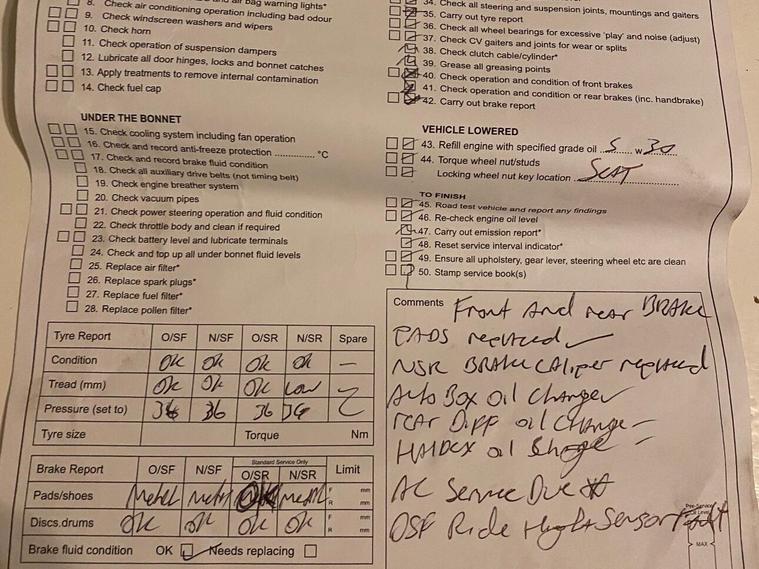 air bag warning lights*
8. Check air conditioning operation including bad odour
9. Check windscreen washers and wipers
10. Check horn
11. Check operation of suspension dampers
12. Lubricate all door hinges, locks and bonnet catches
13. Apply treatments to remove internal contamination
14. Check fuel cap
UNDER THE BONNET
15. Check cooling system including fan operation
16. Check and record anti-freeze protection .............. °C
17. Check and record brake fluid condition
18. Check all auxiliary drive belts (not timing belt)
19. Check engine breather system
20. Check vacuum pipes
21. Check power steering operation and fluid condition
22. Check throttle body and clean if required
23. Check battery level and lubricate terminals
24. Check and top up all under bonnet fluid levels
25. Replace air filter*
26. Replace spark plugs*
27. Replace fuel filter*
28. Replace pollen filter*
Tyre Report O/SF N/SF O/SR N/SR Spare
Condition OK OK OK OK —
Tread (mm) OK OK OK Low
Pressure (set to) 36 36 36 36
Tyre size Torque Nm
Standard Service Only
Brake Report O/SF N/SF O/SR N/SR Limit
Pads/shoes Metal Metal OK Metal F mm R mm
Discs.drums OK OK OK OK F mm R mm
Brake fluid condition OK Needs replacing
34. Check all steering and suspension joints, mountings and gaiters
35. Carry out tyre report
36. Check all wheel bearings for excessive 'play' and noise (adjust)
37. Check CV gaiters and joints for wear or splits
38. Check clutch cable/cylinder*
39. Grease all greasing points
40. Check operation and condition of front brakes
41. Check operation and condition or rear brakes (inc. handbrake)
42. Carry out brake report
VEHICLE LOWERED
43. Refill engine with specified grade oil ...5... w 30
44. Torque wheel nut/studs
Locking wheel nut key location ... SEAT
TO FINISH
45. Road test vehicle and report any findings
46. Re-check engine oil level
47. Carry out emission report*
48. Reset service interval indicator*
49. Ensure all upholstery, gear lever, steering wheel etc are clean
50. Stamp service book(s)
Comments Front and rear BRAKE
PADS replaced
NSR BRAKE CAliper replaced
Auto Box oil Change
rear Diff oil Change
HALDEX oil
AC Service Due
OSF Ride Height Sensor Fault
MAX